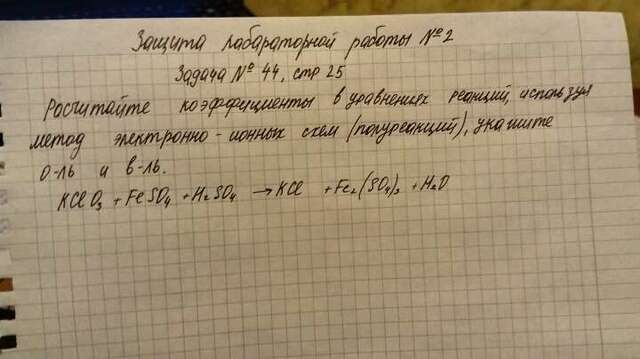 Защита лабараторной работы № 2
Задача № 44, стр 25
Росчитайте коэффициенты в уравнениях реакций, используя
метод электронно-ионных схем (полуреакций), укажите
о-ль и в-ль.
KClO₃ + FeSO₄ + H₂SO₄ → KCl + Fe₂(SO₄)₃ + H₂O